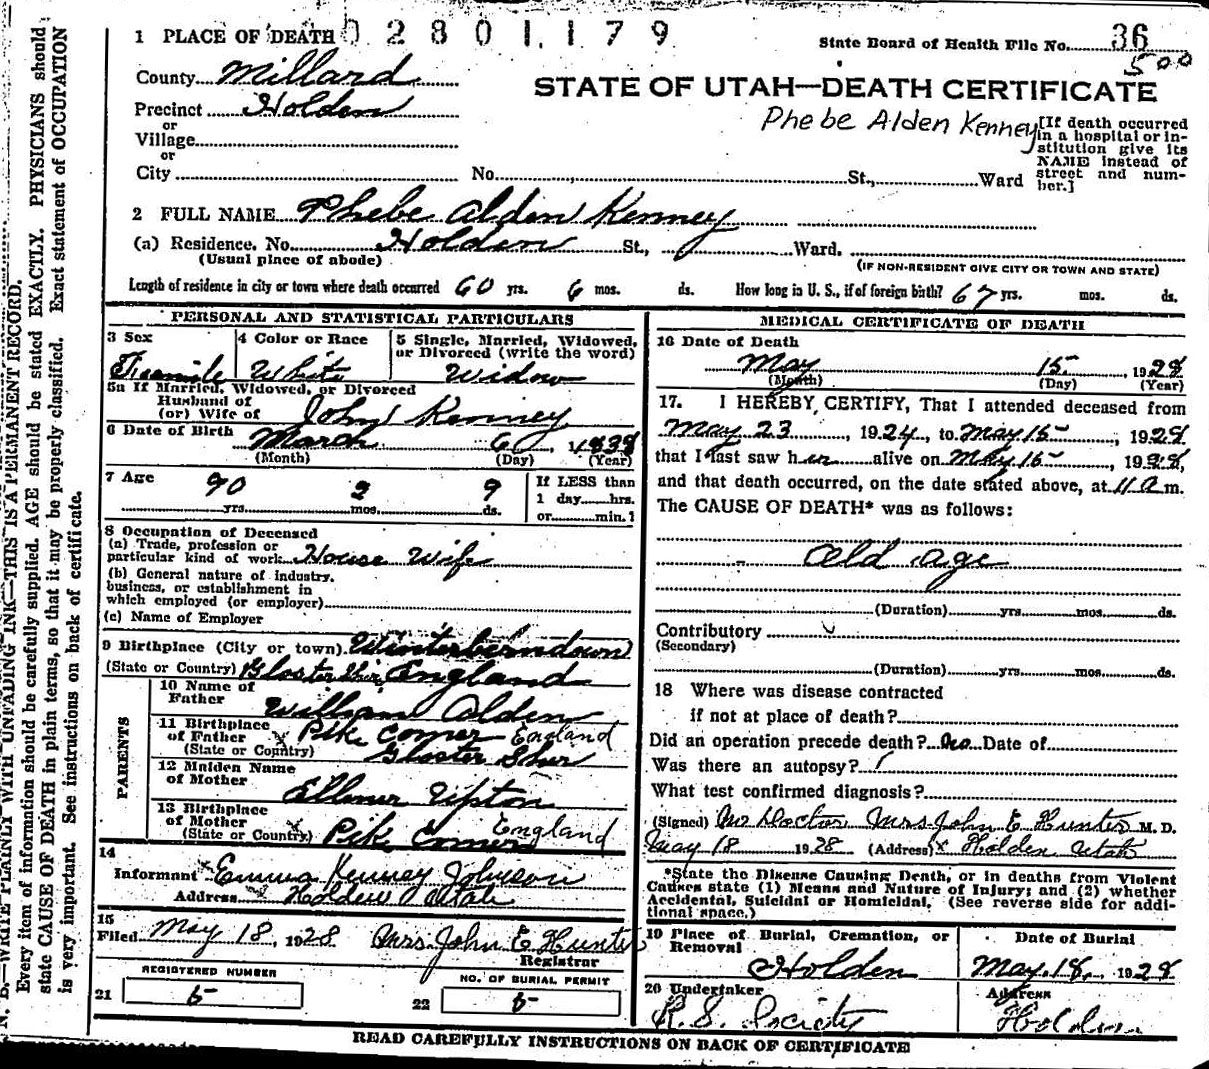 N. B.—WRITE PLAINLY WITH UNFADING INK—THIS IS A PERMANENT RECORD.
Every item of information should be carefully supplied. AGE should be stated EXACTLY. PHYSICIANS should
state CAUSE OF DEATH in plain terms, so that it may be properly classified. Exact statement of OCCUPATION
is very important. See instructions on back of certificate.
1 PLACE OF DEATH 02801179
State Board of Health File No. 36
500
County Millard
STATE OF UTAH—DEATH CERTIFICATE
Precinct Holden
Phebe Alden Kenney
or
Village
or
City No. St., Ward
[If death occurred
in a hospital or in-
stitution give its
NAME instead of
street and num-
ber.]
2 FULL NAME Phebe Alden Kenney
(a) Residence. No. Holden St., Ward.
(Usual place of abode) (IF NON-RESIDENT GIVE CITY OR TOWN AND STATE)
Length of residence in city or town where death occurred 60 yrs. 6 mos. ds. How long in U. S., if of foreign birth? 67 yrs. mos. ds.
PERSONAL AND STATISTICAL PARTICULARS
3 Sex 4 Color or Race 5 Single, Married, Widowed,
or Divorced (write the word)
Female White Widow
5a If Married, Widowed, or Divorced
Husband of
(or) Wife of John Kenney
6 Date of Birth March 6, 1838
(Month) (Day) (Year)
7 Age 90 yrs. 2 mos. 9 ds.
If LESS than
1 day hrs.
or min.?
8 Occupation of Deceased
(a) Trade, profession or
particular kind of work House Wife
(b) General nature of industry,
business, or establishment in
which employed (or employer)
(c) Name of Employer
9 Birthplace (City or town) Winterberndown
(State or Country) Gloster Shir England
PARENTS
10 Name of
Father William Alden
11 Birthplace
of Father Pike Corner England
(State or Country) Gloster Sher
12 Maiden Name
of Mother Ellmer Tipton
13 Birthplace
of Mother England
(State or Country) Pike Corners
14
Informant Emma Kenney Johnson
Address Holden Utah
15
Filed May 18, 1928 Mrs. John E Hunter
Registrar
REGISTERED NUMBER NO. OF BURIAL PERMIT
21 5 22 5
MEDICAL CERTIFICATE OF DEATH
16 Date of Death
May 15, 1928
(Month) (Day) (Year)
17. I HEREBY CERTIFY, That I attended deceased from
May 23, 1924, to May 15, 1928
that I last saw her alive on May 15, 1928,
and that death occurred, on the date stated above, at 11 a m.
The CAUSE OF DEATH* was as follows:
Old age
(Duration) yrs. mos. ds.
Contributory
(Secondary)
(Duration) yrs. mos. ds.
18 Where was disease contracted
if not at place of death?
Did an operation precede death? No Date of
Was there an autopsy?
What test confirmed diagnosis?
(Signed) No Doctor Mrs John E Hunter M. D.
May 18 1928 (Address) Holden Utah
*State the Disease Causing Death, or in deaths from Violent
Causes state (1) Means and Nature of Injury; and (2) whether
Accidental, Suicidal or Homicidal. (See reverse side for addi-
tional space.)
19 Place of Burial, Cremation, or
Removal
Holden
Date of Burial
May 18, 1928
20 Undertaker
R. S. Society
Address
Holden
READ CAREFULLY INSTRUCTIONS ON BACK OF CERTIFICATE